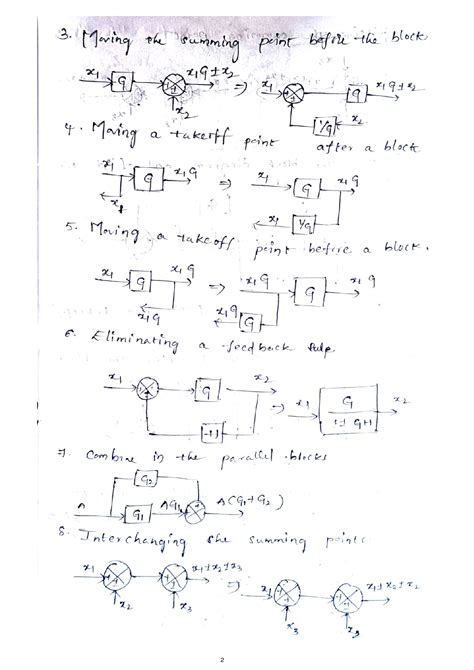 3. Moving the summing point before the block
x1 G x1G ± x2 ⇒ x1 G x1G ± x2
x2 1/G x2
4. Moving a takeoff point after a block
x1 G x1G ⇒ x1 G x1G
x1 x1 1/G
5. Moving a takeoff point before a block.
x1 G x1G ⇒ x1G G x1G
x1G x1G G
6. Eliminating a feedback
x1 G x2 ⇒ x1 G x2
7. Combine in the parallel blocks
G2
A G1 AG1 A(G1+G2)
8. Interchanging the summing points
x1 x1±x2±x3 ⇒ x1 x1±x2±x2
x2 x3 x3
2